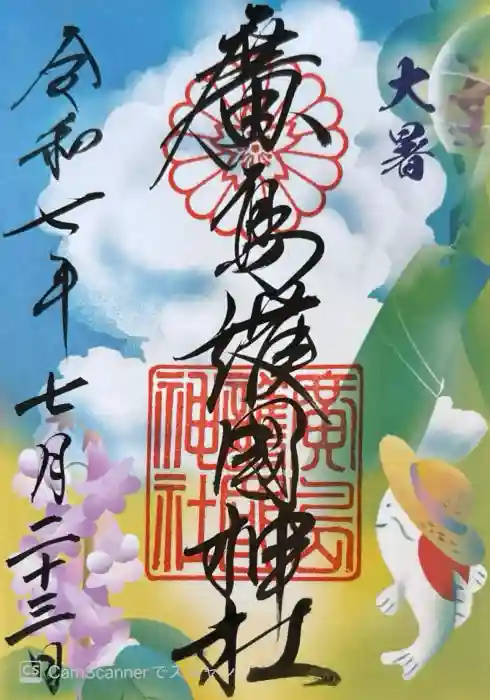 大暑
廣島護國神社
廣島
護國
神社
令和七年七月二十三日
CS CamScanner でス